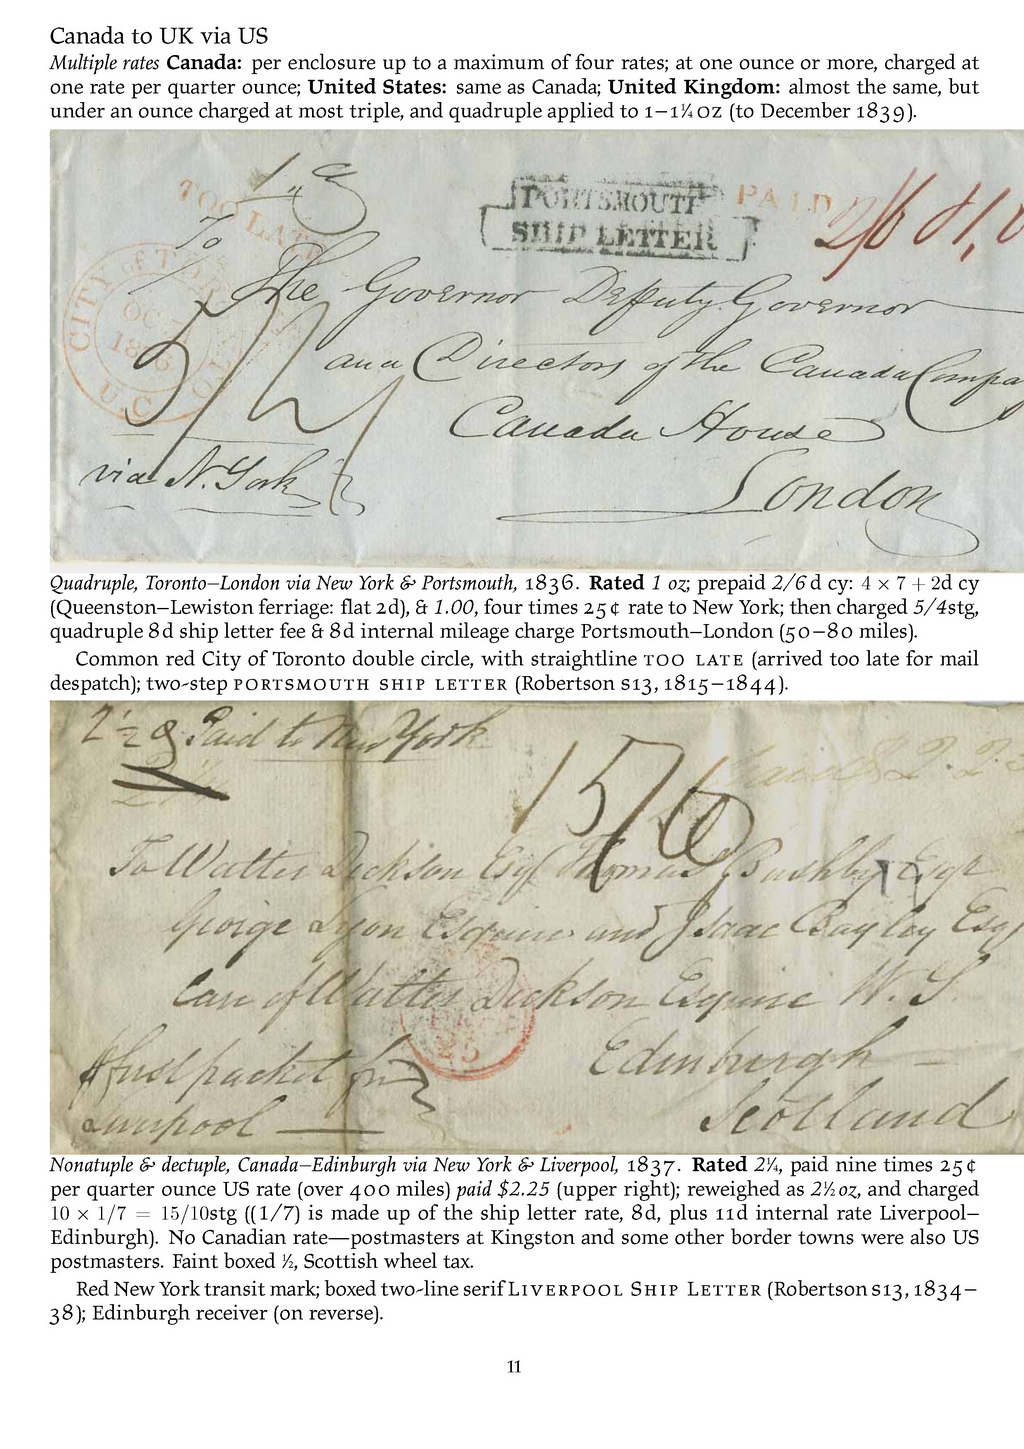 Canada to UK via US
Multiple rates Canada: per enclosure up to a maximum of four rates; at one ounce or more, charged at
one rate per quarter ounce; United States: same as Canada; United Kingdom: almost the same, but
under an ounce charged at most triple, and quadruple applied to 1–1¼ oz (to December 1839).
TOO LATE
PORTSMOUTH
SHIP LETTER
PAID
2/6 & 1,0
CITY OF TORONTO
OC
1836
U.C
To
The Governor Deputy Governor
and Directors of the Canada Compa
Canada House
London
5/4
via N. York
Quadruple, Toronto–London via New York & Portsmouth, 1836. Rated 1 oz; prepaid 2/6 d cy: 4 × 7 + 2d cy
(Queenston–Lewiston ferriage: flat 2d), & 1.00, four times 25¢ rate to New York; then charged 5/4stg,
quadruple 8d ship letter fee & 8d internal mileage charge Portsmouth–London (50–80 miles).
Common red City of Toronto double circle, with straightline TOO LATE (arrived too late for mail
despatch); two-step PORTSMOUTH SHIP LETTER (Robertson S13, 1815–1844).
2½ Paid to New York
15/10
Paid $ 2.2
To Walter Dickson Esq Thomas Bushby Esqr
George Lyon Esquire and Isaac Bayley Esq
Care of Walter Dickson Esquire W. S.
Edinburgh
Scotland
packet for
Liverpool
Nonatuple & dectuple, Canada–Edinburgh via New York & Liverpool, 1837. Rated 2¼, paid nine times 25¢
per quarter ounce US rate (over 400 miles) paid $2.25 (upper right); reweighed as 2½ oz, and charged
10 × 1/7 = 15/10stg ((1/7) is made up of the ship letter rate, 8d, plus 11d internal rate Liverpool–
Edinburgh). No Canadian rate—postmasters at Kingston and some other border towns were also US
postmasters. Faint boxed ½, Scottish wheel tax.
Red New York transit mark; boxed two-line serif LIVERPOOL SHIP LETTER (Robertson S13, 1834–
38); Edinburgh receiver (on reverse).
11